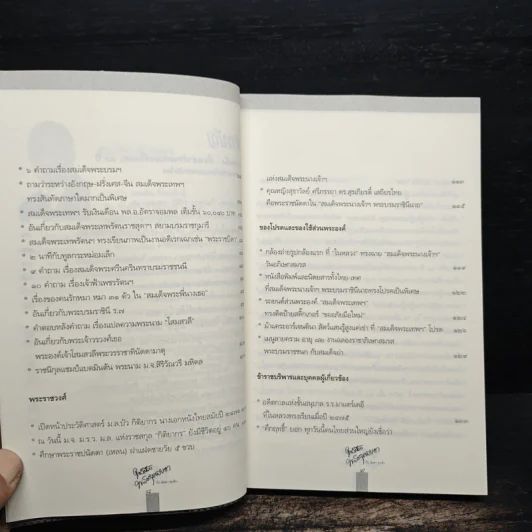 * ๖ คำถามเรื่องสมเด็จพระบรมฯ
* ถามว่าระหว่างอังกฤษ-ฝรั่งเศส-จีน สมเด็จพระเทพฯ
ทรงสันทัดภาษาใดมากเป็นพิเศษ
* สมเด็จพระเทพฯ รับเงินเดือน พล.อ.อัตราจอมพล เต็มขั้น ๖๐,๐๔๐ บาท
* อันเกี่ยวกับสมเด็จพระเทพรัตนราชสุดาฯ สยามบรมราชกุมารี
* สมเด็จพระเทพรัตนฯ ทรงเรียนภาพเป็นงานอดิเรกแกเช่น "พระราชบิดา"
* ๒ นาทีกับทูลกระหม่อมเล็ก
* ๔ คำถาม เรื่องสมเด็จพระศรีนครินทราบรมราชชนนี
* ๑๐ คำถาม เรื่องเจ้าฟ้าเพชรรัตนฯ
* เรื่องของคนรักหมา หมา ๓๑ ตัว ใน "สมเด็จพระพี่นางเธอ"
* อันเกี่ยวกับพระบรมราชินี ร.๗
* คำตอบหลังคำถาม เรื่องแปลความพระนาม "โสมสวลี"
* อันเกี่ยวกับพระเจ้าวรวงศ์เธอ
พระองค์เจ้าโสมสวลีพระวรราชาทินัดดามาตุ
* ราชนิกุลแชมป์แบดมินตัน พระนาม ม.จ.สิริวัณวรี มหิดล
พระราชวงศ์
* เปิดหน้าประวัติศาสตร์ ม.ล.บัว กิติยากร นางเอกหนังไทยสมัยปี ๒๔๗๔
* ณ วันนี้ ม.จ. ม.ร.ว. ม.ล. แห่งราชสกุล "กิติยากร" ยังมีชีวิตอยู่ ๕๐ คน
* ศึกษาพระราชปนัดดา (เหลน) ฝ่ายเด็กชายวัย ๕ ขวบ
แห่งสมเด็จพระนางเจ้าฯ
* คุณหญิงสุธาวัลย์ ศรีภรรยา ดร.สุรเกียรติ์ เสถียรไทย
คือพระราชนัดดาใน "สมเด็จพระนางเจ้าฯ พระบรมราชินีนาถ"
ของโปรดและของใช้ส่วนพระองค์
* กล้องถ่ายรูปกล้องแรก ที่ "ในหลวง" ทรงฉาย "สมเด็จพระนางเจ้าฯ"
วันอภิเษกสมรส
* หนังสือพิมพ์และนิตยสารทั้งไทย-เทศ
ที่สมเด็จพระนางเจ้าฯ พระบรมราชินีนาถทรงโปรดเป็นพิเศษ
* รถยนต์ส่วนพระองค์ "สมเด็จพระเทพฯ"
ทรงติดป้ายสติ๊กเกอร์ "ขออภัยมือใหม่"
* ม้าแคระอาร์เจนตินา สัตว์แสนรู้สูงค่าฝ่า ที่ "สมเด็จพระเทพฯ" โปรด
* เมนูลายคราม อายุ
พระบรมราชชนก กับสมเด็จย่า
ข้าราชบริพารและบุคคลผู้เกี่ยวข้อง
* อดีตกาลแห่งชั้นอนุบาล ร.ร.มาแตร์เดอี
ที่ในหลวงทรงเรียนเมื่อปี ๒๔๗๕
* "ตึกฤทธิ์" บอก ทุกวันนี้คนไทยส่วนใหญ่ยังเชื่อว่า